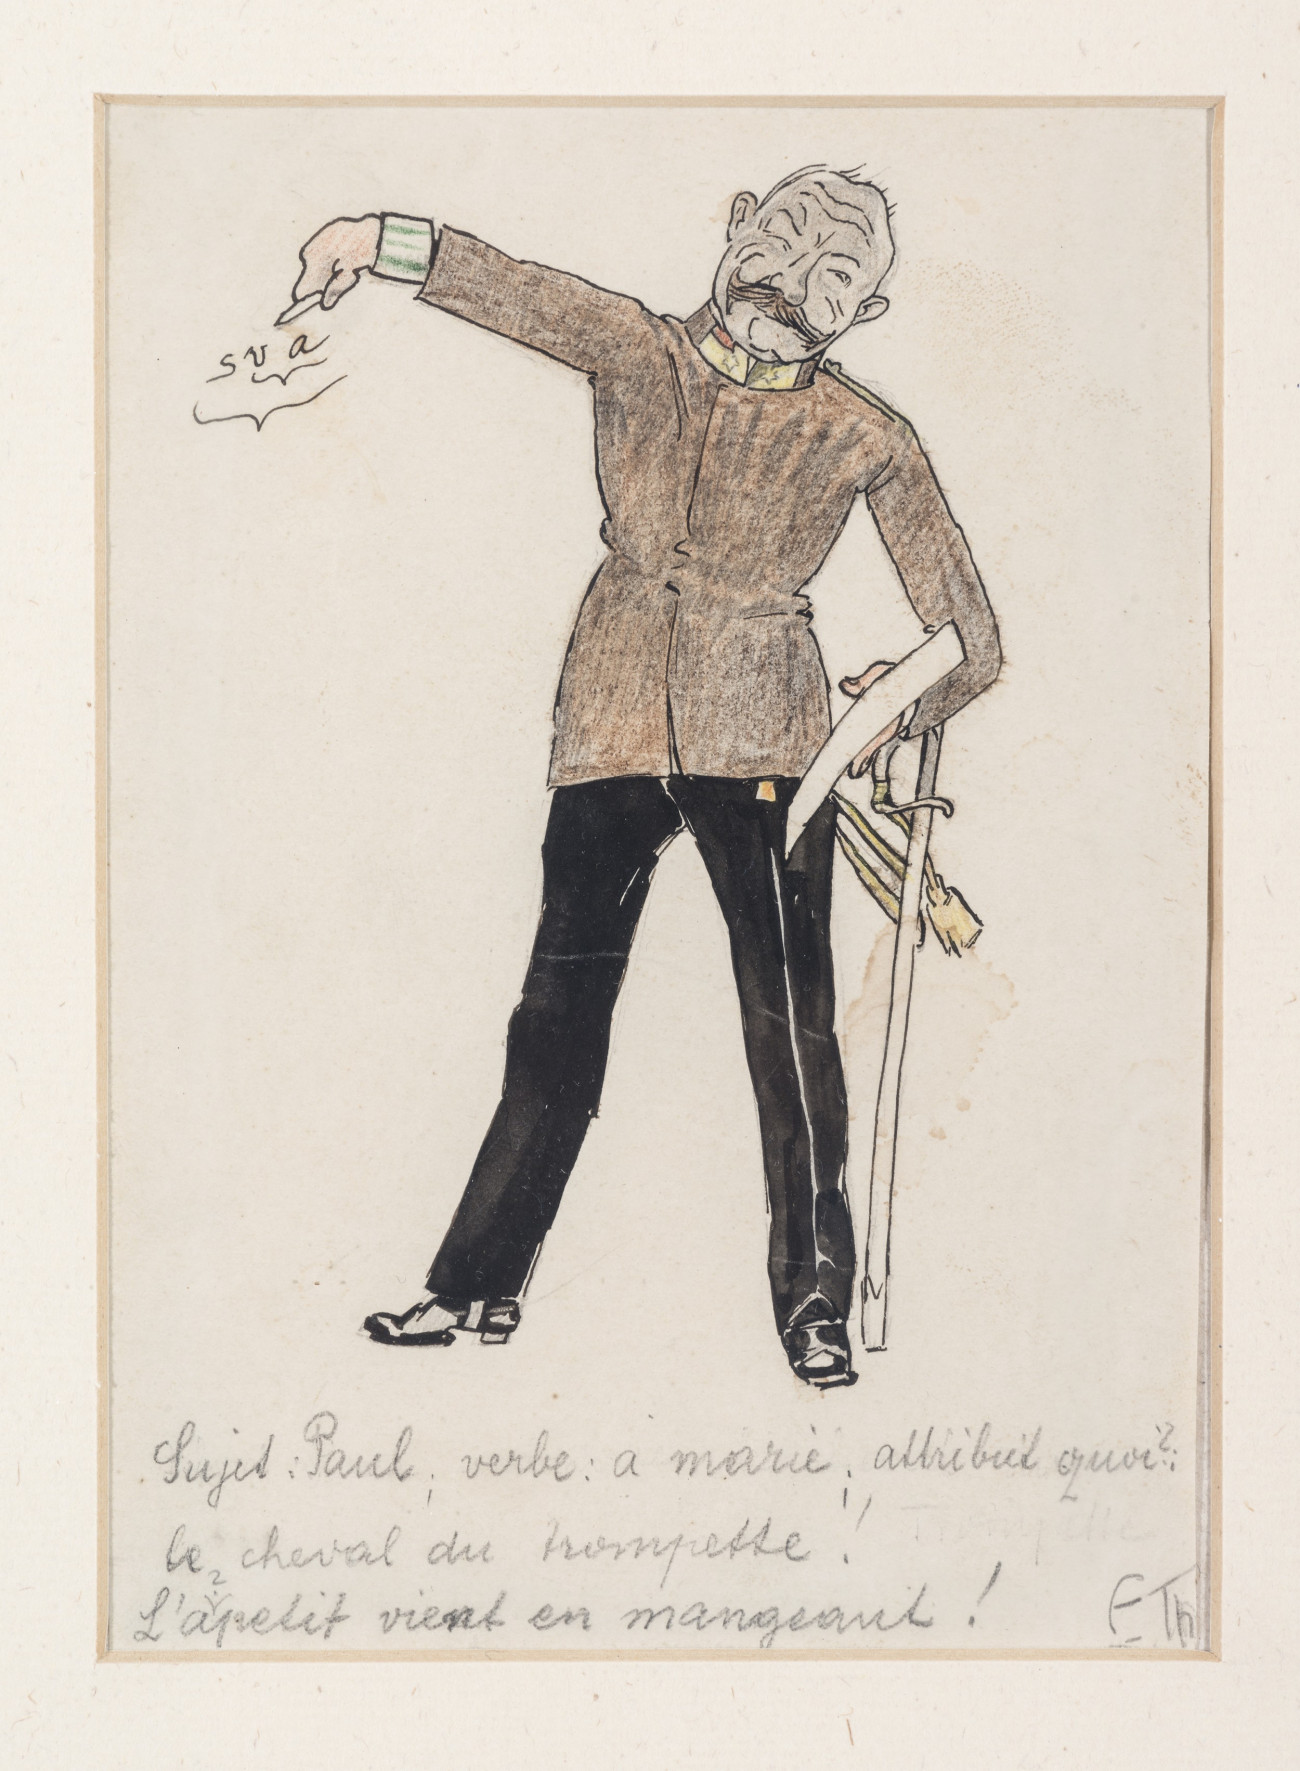 s v a
Sujet : Paul, verbe : a marié, attribut quoi ? :
le cheval du trompette !
L'apetit vient en mangeant !
E Th